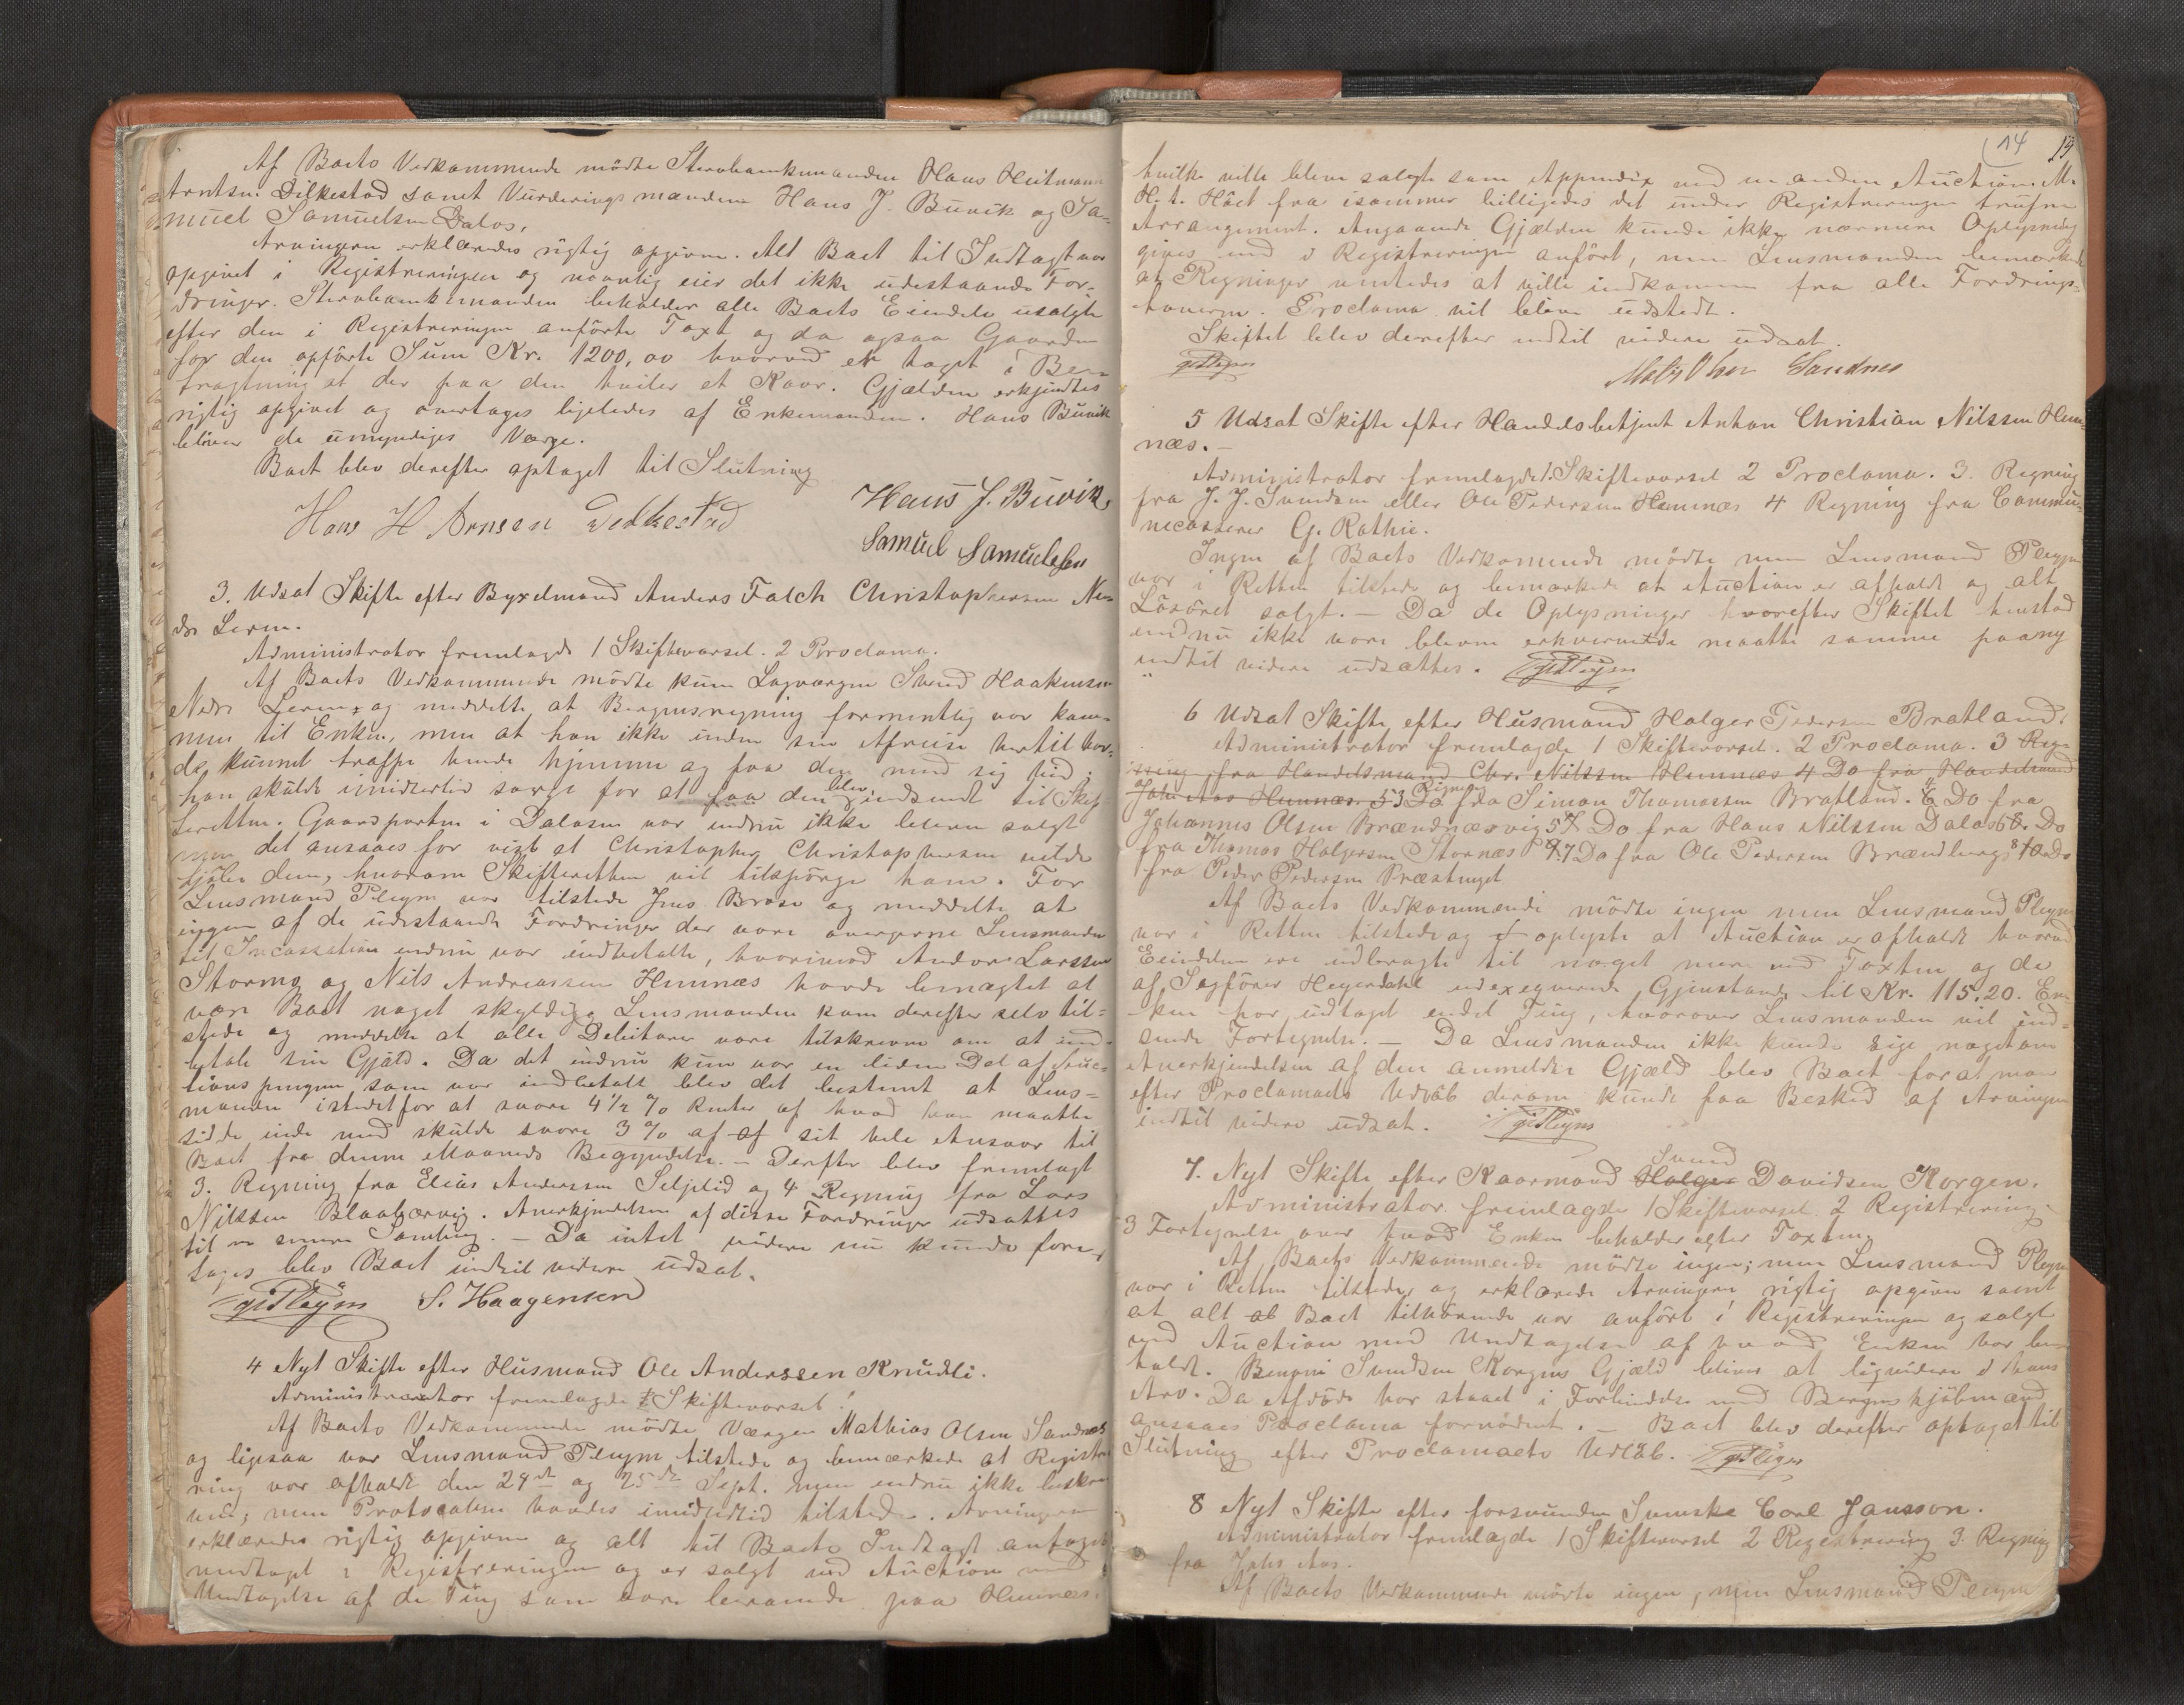 Af Boets Vedkommende mödte Stervboenkemanden Hans Hutmann
Arntsen Dilkestad samt Vurderingsmændene Hans J. Buvik og Sa-
muel Samuelsen Dalos,
Arvingerne erklæredes rigtig opgivne. Alt Boet til Indtægt var
opgivet i Registreringen og navnlig eier det ikke udestaaende For-
dringer. Stervboenkemanden beholder alle Boets Eiendele usolgte
efter den i Registreringen anförte Taxt og da ogsaa Gaarden
for den opförte Sum Kr. 1200,00 hvorved er taget i Be-
tragtning at der paa den hviler et Kaar. Gjælden erkjendtes
rigtig opgivet og overtages ligeledes af Enkemanden. Hans Buvik
bliver de umyndiges Værge.
Boet blev derefter optaget til Slutning
Hans H Arnsen Delkestad Hans J. Buvik,
Samuel Samuelsen
3. Udsat Skifte efter Byxelmand Anders Falch Christophersen Ne-
dre Leren.
Administrator fremlagde 1 Skiftevarsel. 2 Proclama.
Af Boets Vedkommende mödte kun Lagværgen Svend Haakensen
Nedre Leren, og meddelte at Bergensregning formentlig var kom-
men til Enken, men at han ikke inden sin Afreise hertil hav-
de kunnet træffe hende hjemme og faa den med sig hid;
han skulde imidlertid sørge for at faa den blev indsendt til Skif-
teretten. Gaardparten i Dalosen var endnu ikke bleven solgt
men det ansaaes for vist at Christopher Christophersen vilde
kjöbe den, hvorom Skifteretten vil tilspörge ham. For
Lensmand Pleym var tilstede Jens Brose og meddelte at
ingen af de udestaaende Fordringer der vare overgivne Lensmanden
til Incassation endnu var indbetalte, hvorimod Andor Larssen
Stormo og Nils Andreassen Hemnæs havde benægtet at
være Boet noget skyldig. Lensmanden kom derefter selv til-
stede og meddelte at alle Debitorer vare tilskrevne om at ind-
betale sin Gjæld. Da det endnu kun var en liden Del af Auc-
tionspengene som var indbetalt blev det bestemt at Lens-
manden istedetfor at svare 4½ % Renter af hvad han maatte
sidde inde med skulde svare 3 % af af sit hele Ansvar til
Boet fra denne Maaneds Begyndelse. - Derefter blev fremlagt
3. Regning fra Elias Andersen Seljelid og 4 Regning fra Lars
Nilssen Blaabærvig. Anerkjendelsen af disse Fordringer udsattes
til en senere Samling. - Da intet videre nu kunde fore-
tages blev Boet indtil videre udsat.
gjPleym S. Haagensen
4 Nyt Skifte efter Husmand Ole Anderssen Knudli.
Administrator fremlagde 1 Skiftevarsel.
Af Boets Vedkommende mödte Værgen Mathias Olsen Sandnæs
og ligesaa var Lensmand Pleym tilstede og bemærkede at Registre
ring var afholdt den 24de og 25de Sept. men endnu ikke beskre
ven; men Protocollen havdes imidlertid tilstede. Arvingerne
erklæredes rigtig opgivne og alt til Boets Indtægt antoges
medtaget i Registreringen og er solgt ved Auction med
Undtagelse af de Ting som vare beroende paa Hemnæs.
14 19
hvilke ville bleve solgte som Appendix ved en anden Auction. M.
H. t. Höet fra isommer billigedes det under Registreringen trufne
Arrangement. Angaaende Gjælden kunde ikke nærmere Oplysning
gives end i Registreringen anfört, men Lensmanden bemærkede
at Regninger ventedes at ville indkomme fra alle Fordrings-
haverne. Proclama vil blive udstedt.
Skiftet blev derefter indtil videre udsat.
gjPleym Mats Olsen Sandnes
5 Udsat Skifte efter Handelsbetjent Anton Christian Nilssen Hem-
næs. -
Administrator fremlagde 1. Skiftevarsel 2 Proclama. 3. Regning
fra J. J. Svendsen eller Ole Pedersen Hemnæs 4 Regning fra Commu-
necasserer G. Rathie.
Ingen af Boets Vedkommende mödte men Lensmand Pleym
var i Retten tilstede og bemærkede at Auction er afholdt og alt
Lösöret solgt. - Da de Oplysninger hvorefter Skiftet henstod
endnu ikke vare blevne erhvervede maatte samme paany
indtil videre udsættes. gjPleym
6 Udsat Skifte efter Husmand Holger Pedersen Bratland.
Administrator fremlagde 1 Skiftevarsel. 2 Proclama. 3 Reg-
ning fra Handelsmand Chr. Nilssen Hemnæs 4 Do fra Handelsmand
Johs Aas Hemnæs. 5 3 Do Regning fra Simon Thomassen Bratland. 6 4 Do fra
Johannes Olsen Brændnæsvig 5 7 Do fra Hans Nilssen Dalos 6 8. Do
fra Thomas Holgersen Stornæs 9 7 Do fra Ole Pedersen Brændberg 8 10 Do
fra Peder Pedersen Præstenget
Af Boets Vedkommende mödte ingen men Lensmand Pleym
var i Retten tilstede og oplyste at Auction er afholdt hvorved
Eiendelene ere udbragte til noget mere end Taxten og de
af Sagförer Heyerdahl udexeqverede Gjenstande til Kr. 115,20. En-
ken har udtaget endel Ting, hvorover Lensmanden vil ind-
sende Fortegnelse. - Da Lensmanden ikke kunde sige noget om
Anerkjendelsen af den anmeldte Gjæld blev Boet for at man
efter Proclamaets Udlöb derom kunde faa Besked af Arvingerne
indtil videre udsat. gjPleym
7. Nyt Skifte efter Kaarmand Holger Svend Davidsen Korgen.
Administrator fremlagde 1 Skiftevarsel 2 Registrering.
3 Fortegnelse over hvad Enken beholder efter Taxten.
Af Boets Vedkommende mödte ingen; men Lensmand Pleym
var i Retten tilstede, og erklærede Arvingerne rigtig opgivne samt
at alt ab Boet tilhörende var anfört i Registreringen og solgt
ved Auction med Undtagelse af hvad Enken har be-
holdt. Benoni Svendsen Korgens Gjæld bliver at liqvidere i hans
Arv. Da Afdöde har staaet i Forbindelse med Bergens kjöbmænd
ansaaes Proclama fornödent. - Boet blev derefter optaget til
Slutning efter Proclamaets Udlöb. gjPleym
8 Nyt Skifte efter forsvunden Svenske Carl Jansson.
Administrator fremlagde 1 Skiftevarsel 2 Registrering 3. Regning
fra Johs Aas.
Af Boets Vedkommende mödte ingen, men Lensmand Pleym